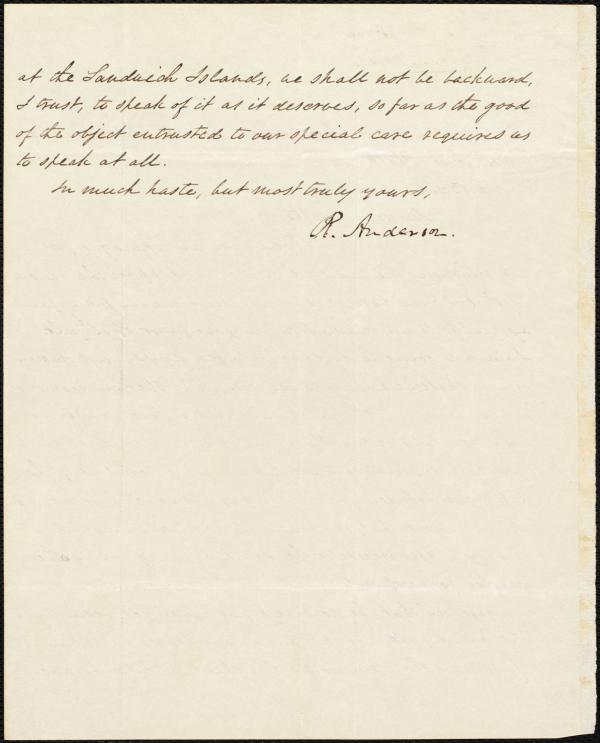 at the Sandwich Islands, we shall not be backward,
I trust, to speak of it as it deserves, so far as the good
of the object entrusted to our special care requires us
to speak at all.
In much haste, but most truly yours,
R. Anderson.